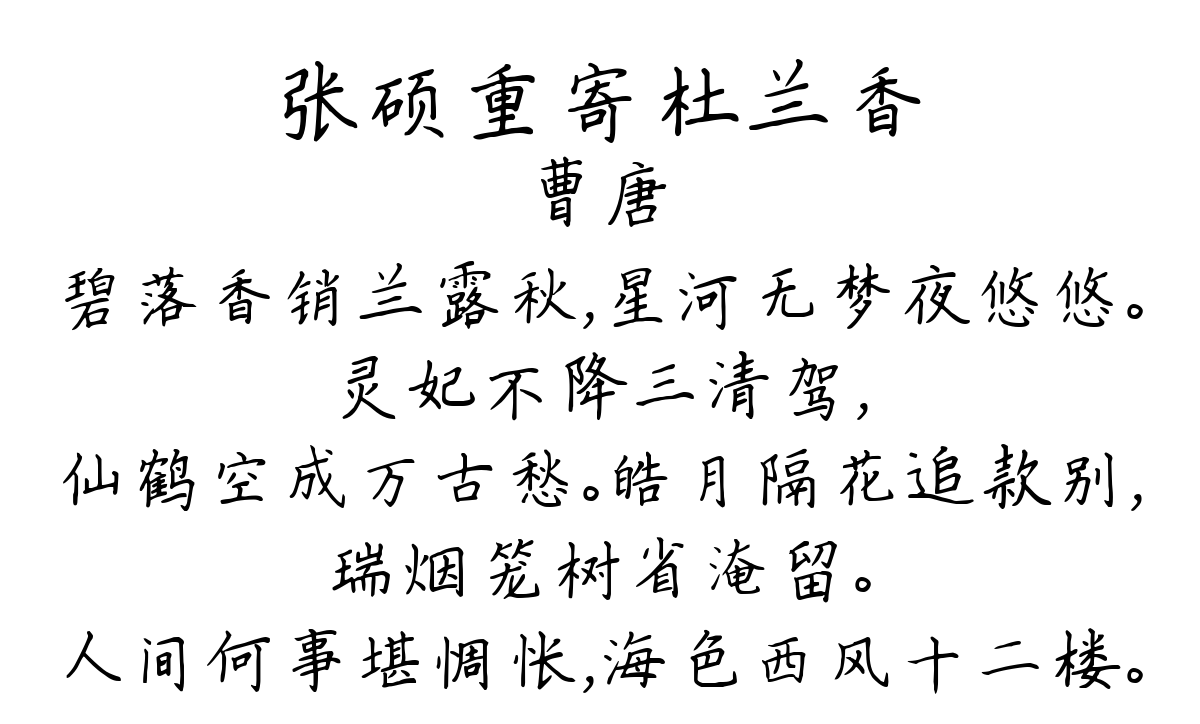 张硕重寄杜兰香
曹唐
碧落香销兰露秋,星河无梦夜悠悠。
灵妃不降三清驾,
仙鹤空成万古愁。皓月隔花追款别,
瑞烟笼树省淹留。
人间何事堪惆怅,海色西风十二楼。